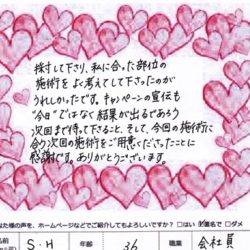 探して下さり、私に合った部位の
施術をよく考えてして下さったのが
うれしかったです。キャンペーンの宣伝も
"今日"ではなく結果が出るであろう
次回まで待って下さること、そして、今回の施術に
合う次回の施術をご用意くださったことに
感謝です。ありがとうございます。
な様の声を、ホームページなどでご紹介してもよろしいですか? □はい ☑匿名で □ダメ
名前 S・H 年齢 36 職業 会社員